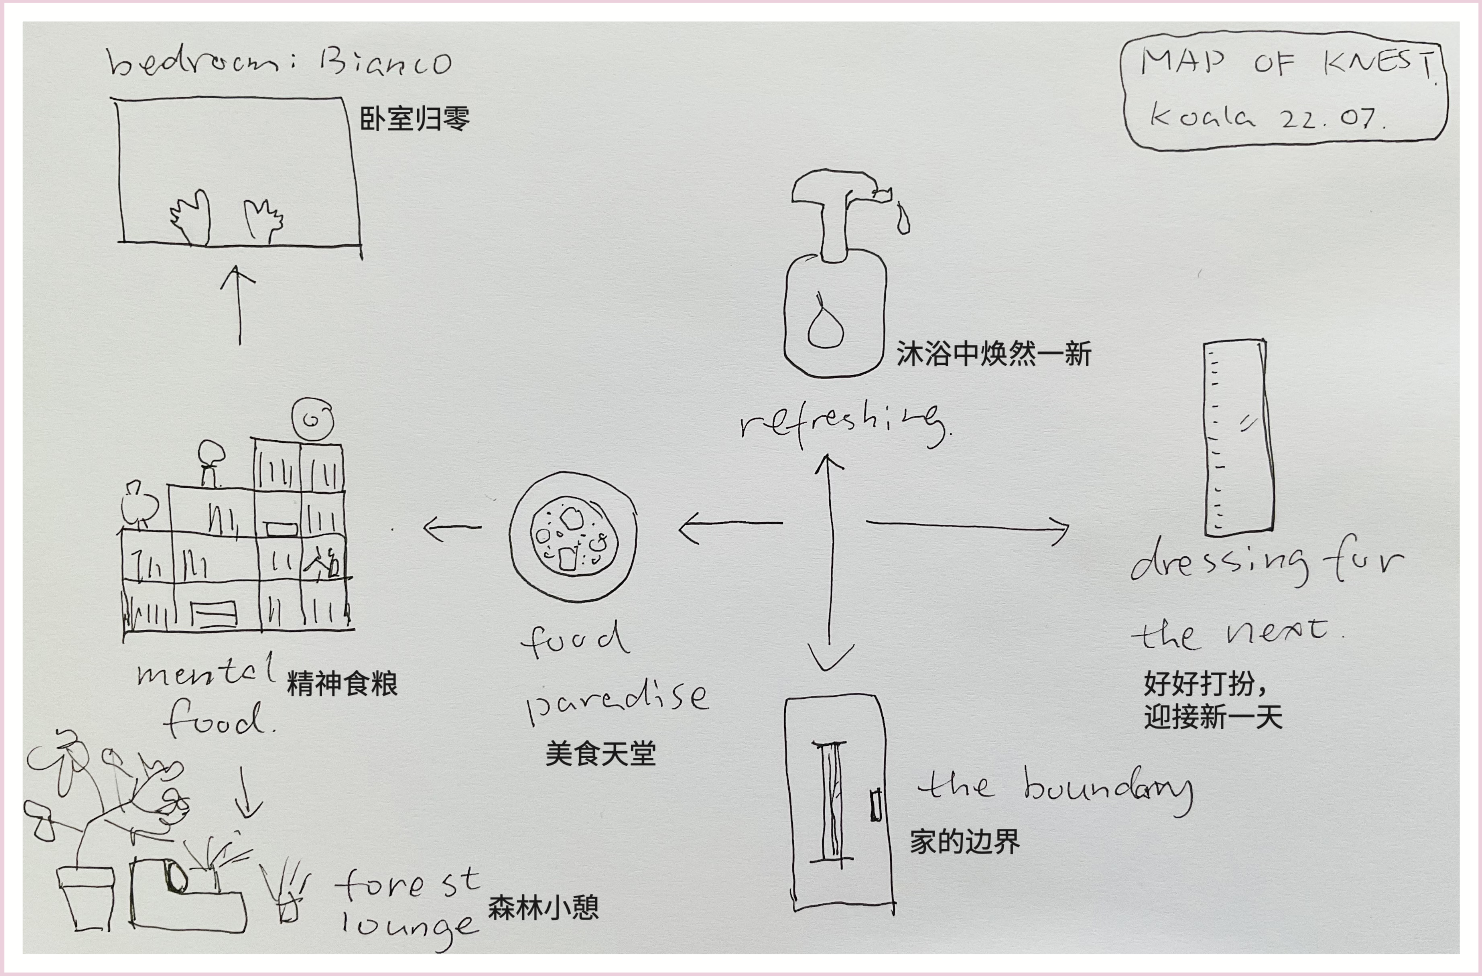 bedroom: Bianco
卧室归零
MAP OF KNEST.
Koala 22.07.
沐浴中焕然一新
refreshing.
dressing for
the next.
好好打扮，
迎接新一天
mental
food.
精神食粮
food
paradise
美食天堂
the boundary
家的边界
forest
lounge
森林小憩